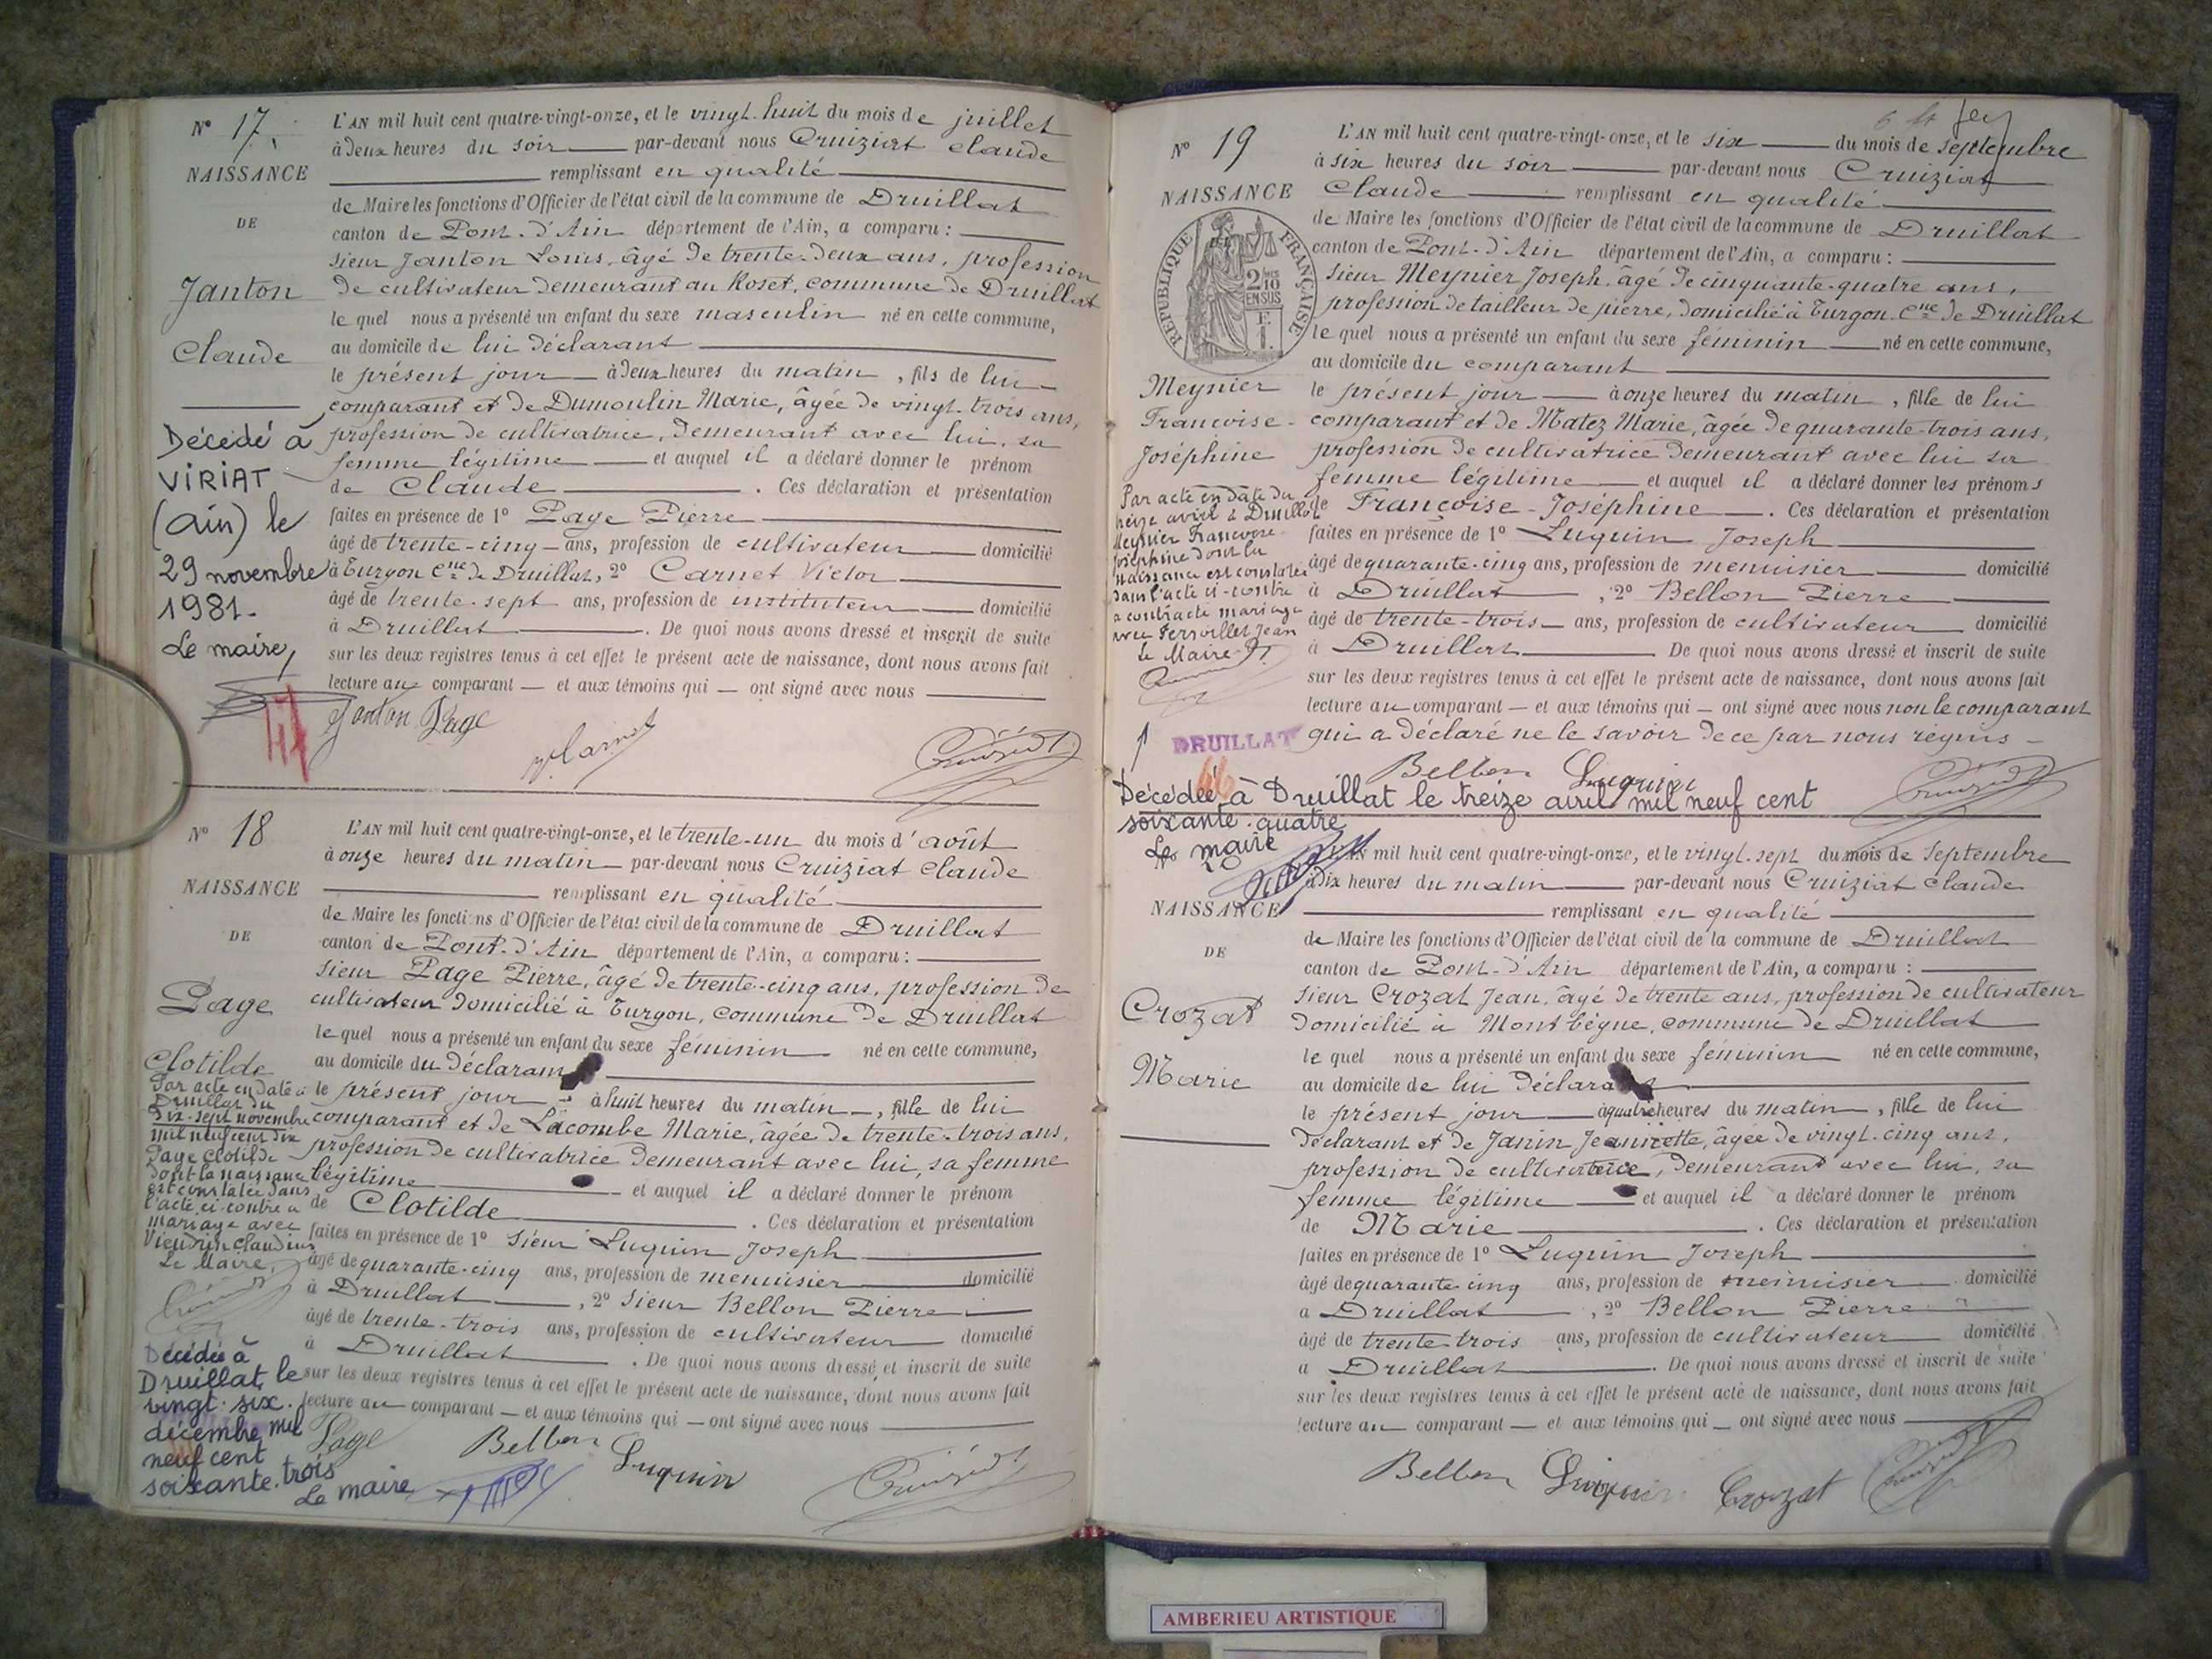 N° 17
NAISSANCE
DE
Janton
Claude
L'AN mil huit cent quatre-vingt-onze, et le vingt-huit du mois de juillet
à deux heures du soir par-devant nous Cruiziat Claude
remplissant en qualité
de Maire les fonctions d'Officier de l'état civil de la commune de Druillat
canton de Pont-d'Ain département de l'Ain, a comparu :
Sieur Janton Louis, âgé de trente-deux ans, profession
de cultivateur demeurant au Roset, commune de Druillat
le quel nous a présenté un enfant du sexe masculin né en cette commune,
au domicile de lui déclarant
le présent jour à deux heures du matin, fils de lui
comparant et de Dumoulin Marie, âgée de vingt-trois ans,
profession de cultivatrice, demeurant avec lui, sa
femme légitime et auquel il a déclaré donner le prénom
de Claude. Ces déclaration et présentation
faites en présence de 1° Page Pierre
âgé de trente-cinq ans, profession de cultivateur domicilié
à Turgon Cne de Druillat, 2° Carnet Victor
âgé de trente-sept ans, profession de instituteur domicilié
à Druillat. De quoi nous avons dressé et inscrit de suite
sur les deux registres tenus à cet effet le présent acte de naissance, dont nous avons fait
lecture au comparant — et aux témoins qui — ont signé avec nous
Janton Page
V Carnet
Cruiziat
Décédé à
VIRIAT
(Ain) le
29 novembre
1981.
Le maire,
N° 18
NAISSANCE
DE
Page
Clotilde
L'AN mil huit cent quatre-vingt-onze, et le trente-un du mois d'août
à onze heures du matin par-devant nous Cruiziat Claude
remplissant en qualité
de Maire les fonctions d'Officier de l'état civil de la commune de Druillat
canton de Pont-d'Ain département de l'Ain, a comparu :
Sieur Page Pierre, âgé de trente-cinq ans, profession de
cultivateur domicilié à Turgon, commune de Druillat
le quel nous a présenté un enfant du sexe féminin né en cette commune,
au domicile du déclarant
le présent jour à huit heures du matin, fille de lui
comparant et de Lacombe Marie, âgée de trente-trois ans,
profession de cultivatrice demeurant avec lui, sa femme
légitime et auquel il a déclaré donner le prénom
de Clotilde. Ces déclaration et présentation
faites en présence de 1° Sieur Luquin Joseph
âgé de quarante-cinq ans, profession de menuisier domicilié
à Druillat, 2° Sieur Bellon Pierre
âgé de trente-trois ans, profession de cultivateur domicilié
à Druillat. De quoi nous avons dressé et inscrit de suite
sur les deux registres tenus à cet effet le présent acte de naissance, dont nous avons fait
lecture au comparant — et aux témoins qui — ont signé avec nous
Page Bellon Luquin Cruiziat
Par acte en date à
Druillat du
dix-sept novembre
mil neuf cent dix
Page Clotilde
dont la naissance
est constatée dans
l'acte ci-contre a
mariage avec
Vieudrin Claudius
Le Maire,
Décédée à
Druillat, le
vingt-six
décembre mil
neuf cent
soixante-trois
Le maire
N° 19
NAISSANCE
RÉPUBLIQUE FRANÇAISE
2/10 EN SUS
Meynier
Françoise-
Joséphine
L'AN mil huit cent quatre-vingt-onze, et le six du mois de septembre
à six heures du soir par-devant nous Cruiziat
Claude remplissant en qualité
de Maire les fonctions d'Officier de l'état civil de la commune de Druillat
canton de Pont-d'Ain département de l'Ain, a comparu :
Sieur Meynier Joseph, âgé de cinquante-quatre ans,
profession de tailleur de pierre, domicilié à Turgon Cne de Druillat
le quel nous a présenté un enfant du sexe féminin né en cette commune,
au domicile du comparant
le présent jour à onze heures du matin, fille de lui
comparant et de Matez Marie, âgée de quarante-trois ans,
profession de cultivatrice demeurant avec lui sa
femme légitime et auquel il a déclaré donner les prénoms
de Françoise-Joséphine. Ces déclaration et présentation
faites en présence de 1° Luquin Joseph
âgé de quarante-cinq ans, profession de menuisier domicilié
à Druillat, 2° Bellon Pierre
âgé de trente-trois ans, profession de cultivateur domicilié
à Druillat De quoi nous avons dressé et inscrit de suite
sur les deux registres tenus à cet effet le présent acte de naissance, dont nous avons fait
lecture au comparant — et aux témoins qui — ont signé avec nous non le comparant
qui a déclaré ne le savoir de ce par nous réquis
Bellon Luquin Cruiziat
Par acte en date du
treize avril à Druillat
Meynier Françoise
Joséphine dont la
naissance est constatée
dans l'acte ci-contre
a contracté mariage
avec Ferrollet Jean
Le Maire
DRUILLAT
Décédée à Druillat le treize avril mil neuf cent
soixante-quatre
Le maire
NAISSANCE
DE
Crozat
Marie
L'AN mil huit cent quatre-vingt-onze, et le vingt-sept du mois de Septembre
à dix heures du matin par-devant nous Cruiziat Claude
remplissant en qualité
de Maire les fonctions d'Officier de l'état civil de la commune de Druillat
canton de Pont-d'Ain département de l'Ain, a comparu :
Sieur Crozat Jean, âgé de trente ans, profession de cultivateur
domicilié à Montbègue, commune de Druillat
le quel nous a présenté un enfant du sexe féminin né en cette commune,
au domicile de lui déclarant
le présent jour à quatre heures du matin, fille de lui
déclarant et de Janin Jeannette, âgée de vingt-cinq ans,
profession de cultivatrice, demeurant avec lui, sa
femme légitime et auquel il a déclaré donner le prénom
de Marie. Ces déclaration et présentation
faites en présence de 1° Luquin Joseph
âgé de quarante-cinq ans, profession de menuisier domicilié
à Druillat, 2° Bellon Pierre
âgé de trente-trois ans, profession de cultivateur domicilié
à Druillat. De quoi nous avons dressé et inscrit de suite
sur les deux registres tenus à cet effet le présent acte de naissance, dont nous avons fait
lecture au comparant — et aux témoins qui — ont signé avec nous
Bellon Luquin Crozat Cruiziat
AMBERIEU ARTISTIQUE